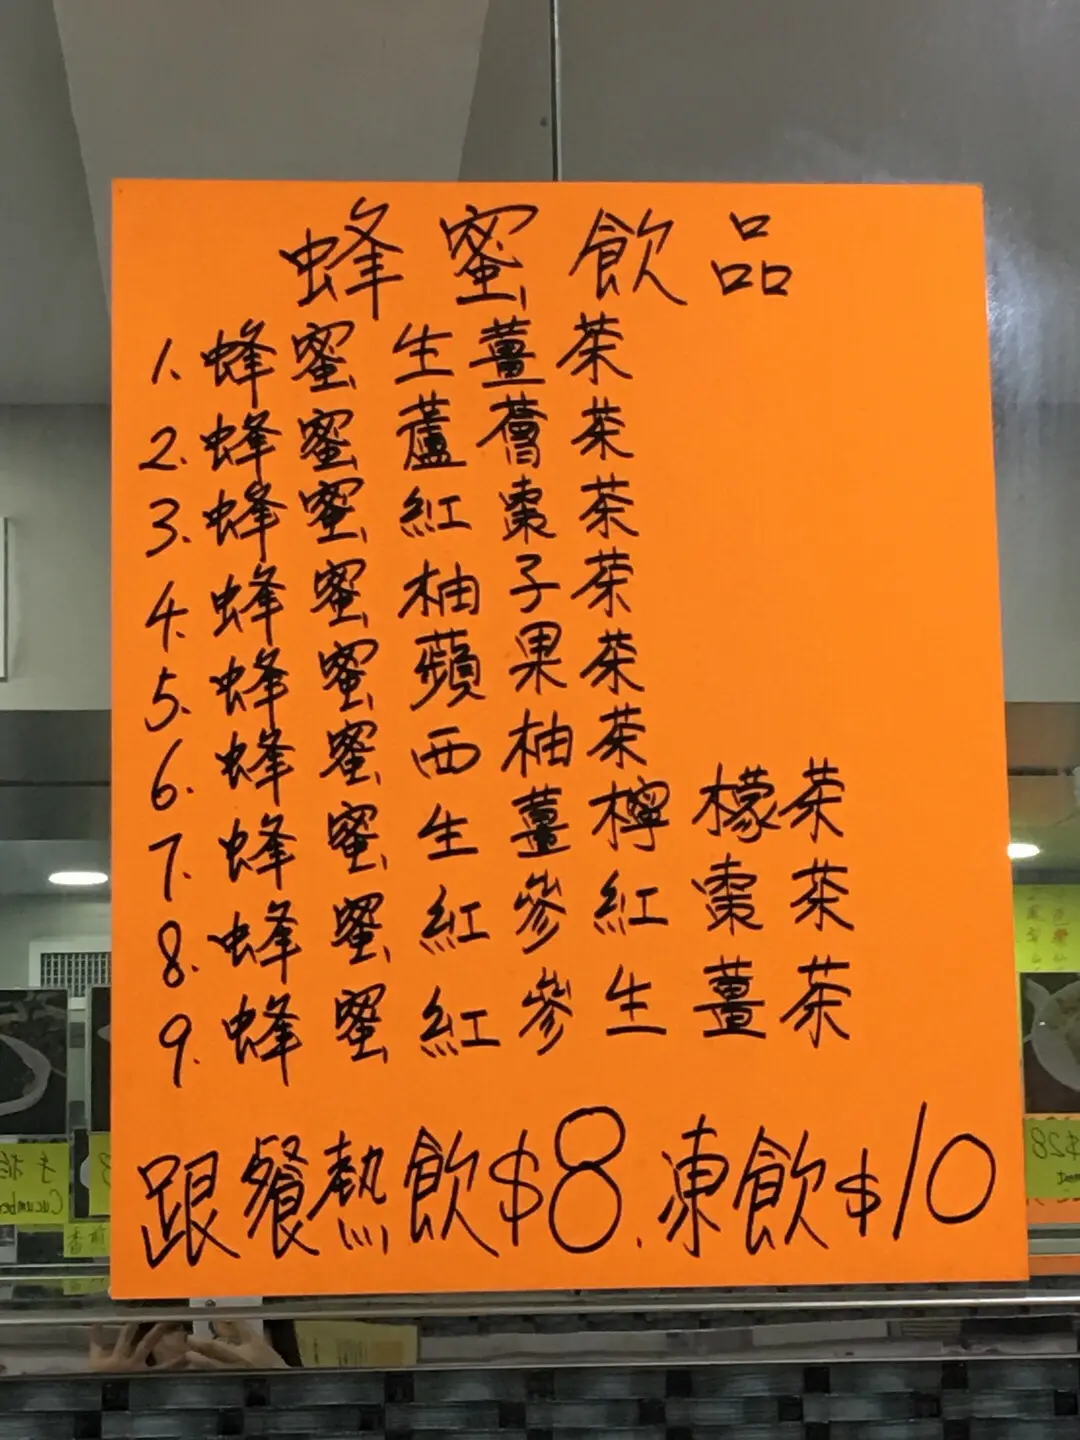 蜂蜜飲品
1. 蜂蜜生薑茶
2. 蜂蜜蘆薈茶
3. 蜂蜜紅棗茶
4. 蜂蜜柚子茶
5. 蜂蜜蘋果茶
6. 蜂蜜西柚茶
7. 蜂蜜生薑檸檬茶
8. 蜂蜜紅參紅棗茶
9. 蜂蜜紅參生薑茶
跟餐熱飲$8.凍飲$10
$28